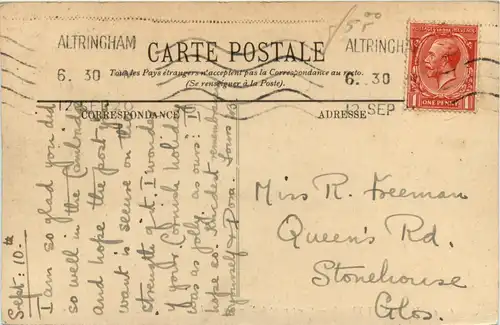 5 00
ALTRINGHAM
6. 30
12 SEP
ALTRINGHAM
6. 30
12 SEP
CARTE POSTALE
Tous les Pays étrangers n'acceptent pas la Correspondance au recto.
(Se renseigner à la Poste).
CORRESPONDANCE
ADRESSE
POSTAGE REVENUE
1 ONE PENNY 1
Miss R. Freeman
Queen's Rd.
Stonehouse
Glos.
Sept: 10th
I am so glad you did
so well in the Cambridge
and hope the post you
want is secure on the
strength of it. I wonder
if your Cornish holiday
was as jolly as ours: I
hope so. Kindest remembrances
to yourself & Dora. Yours